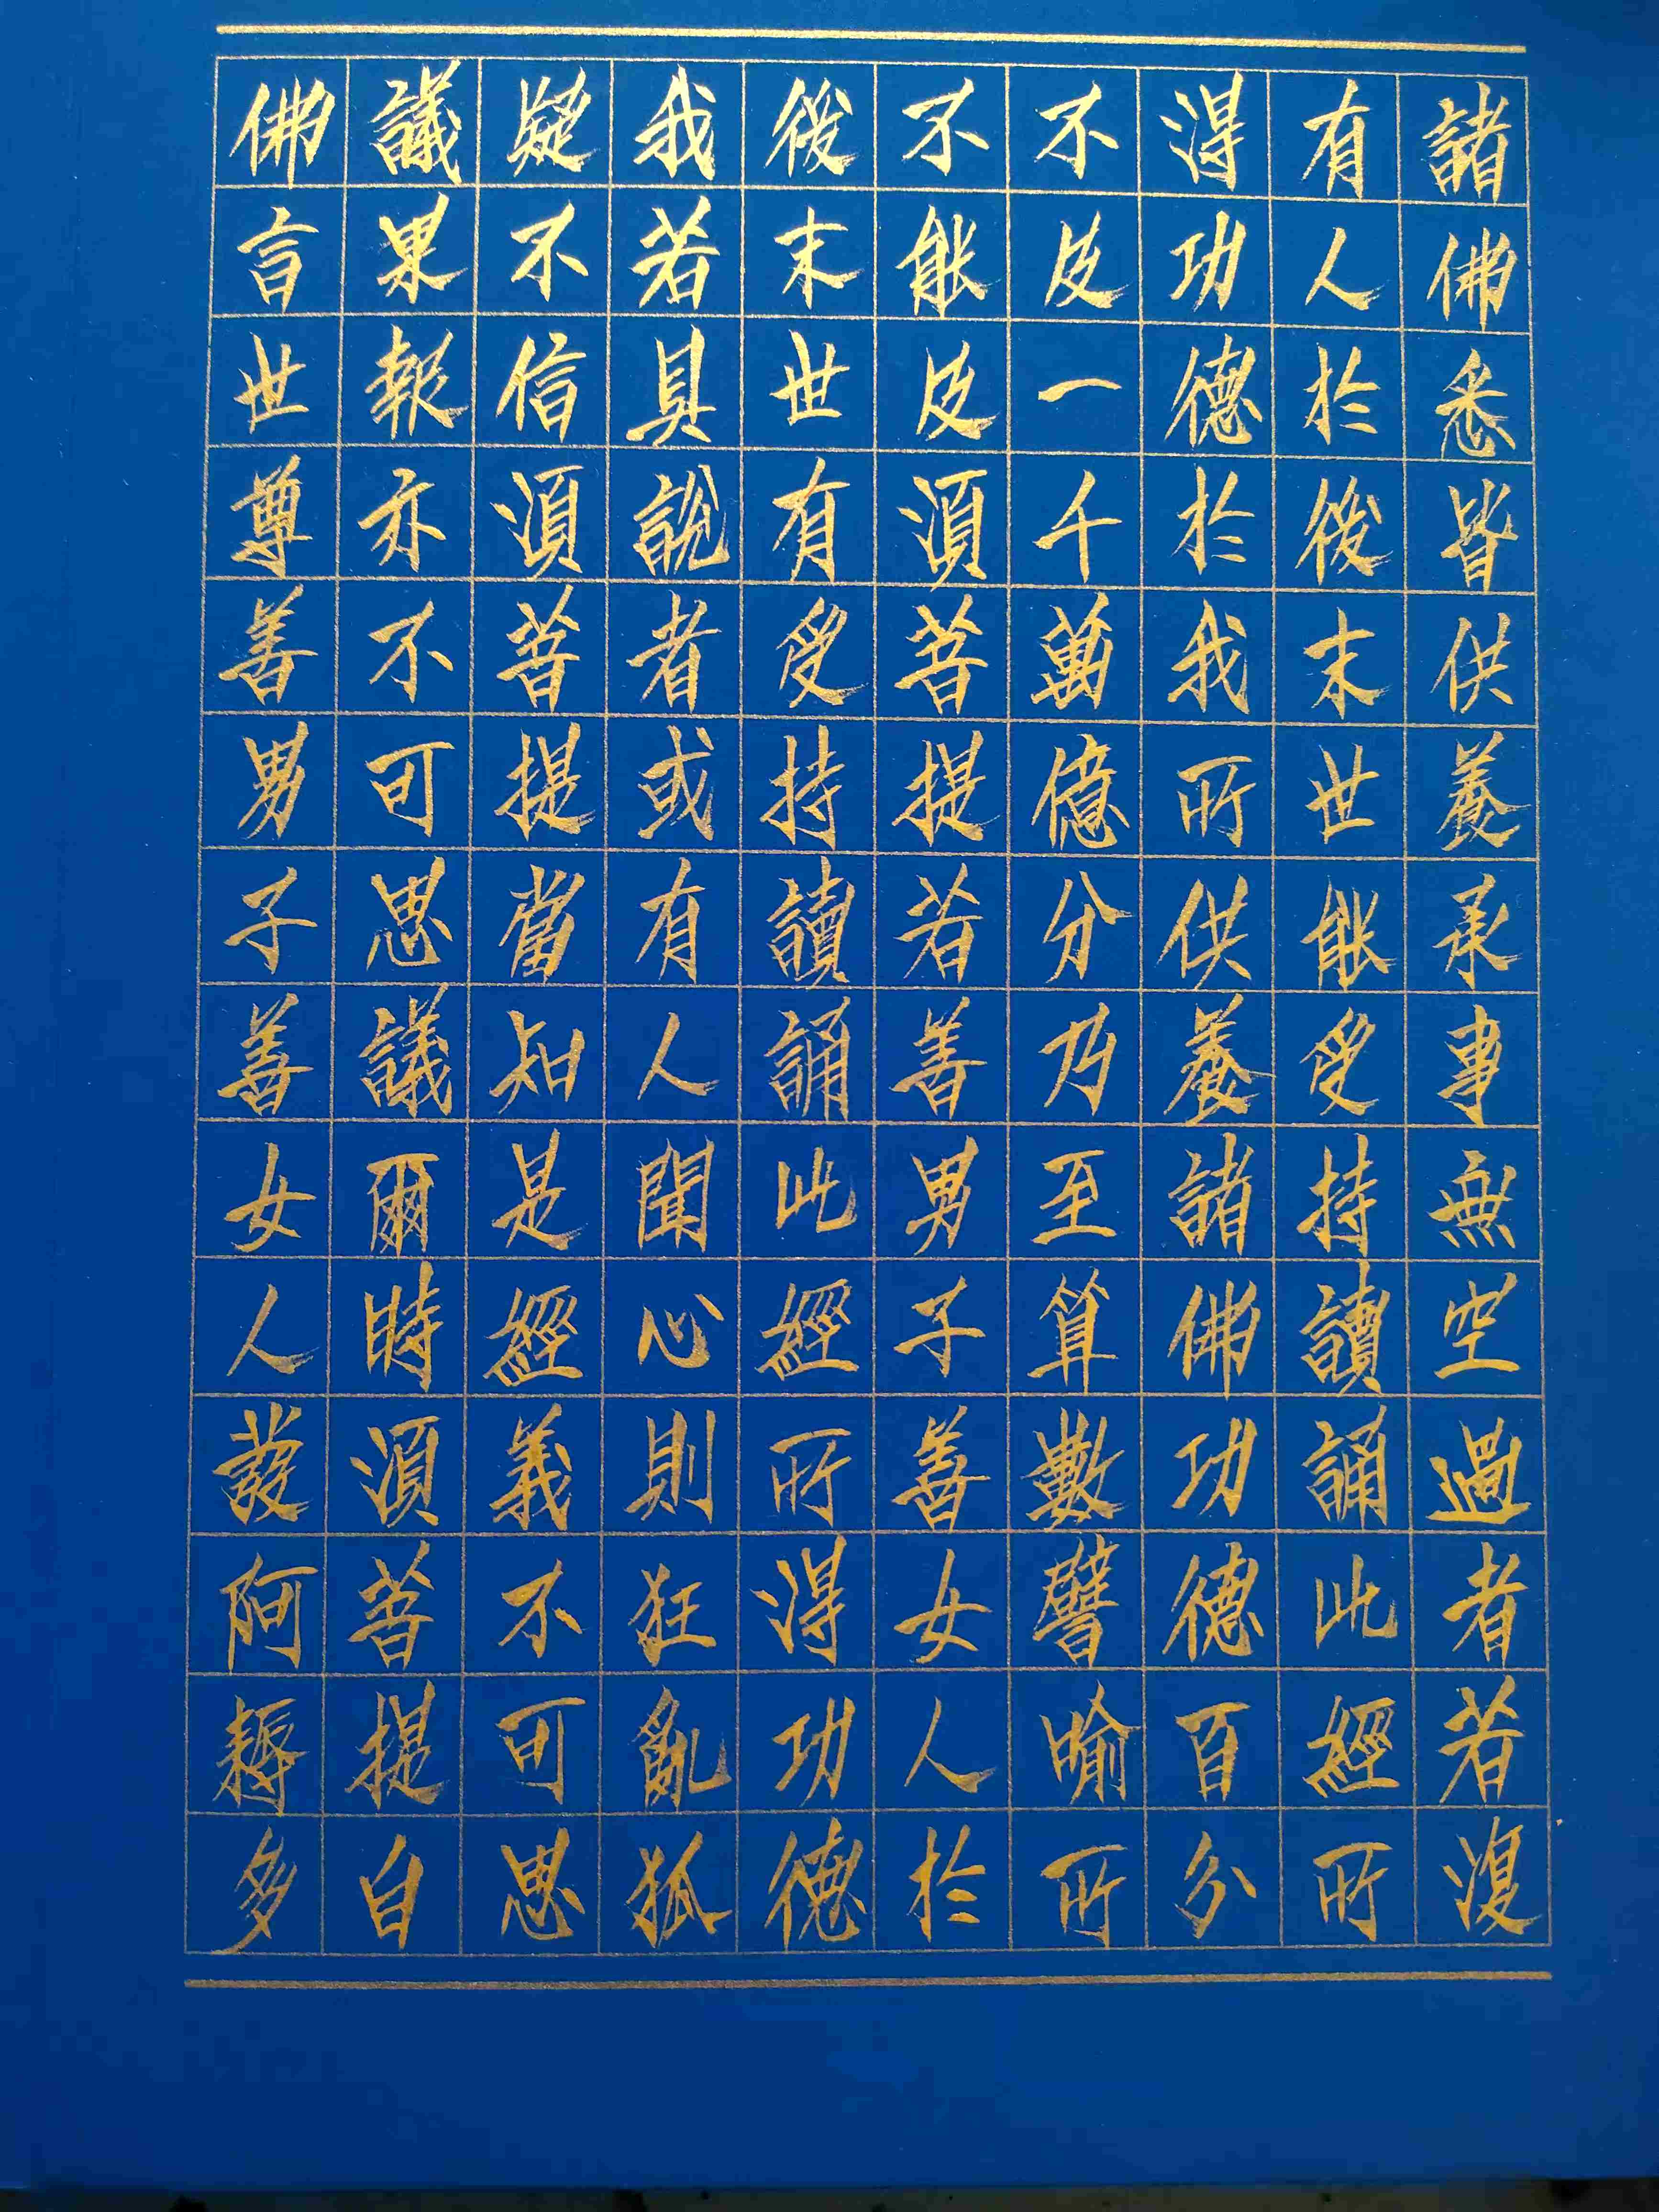 諸佛悉皆供養承事無空過者若復
有人於後末世能受持讀誦此經所
得功德於我所供養諸佛功德百分
不及一千萬億分乃至算數譬喻所
不能及須菩提若善男子善女人於
後末世有受持讀誦此經所得功德
我若具說者或有人聞心則狂亂狐
疑不信須菩提當知是經義不可思
議果報亦不可思議爾時須菩提白
佛言世尊善男子善女人發阿耨多